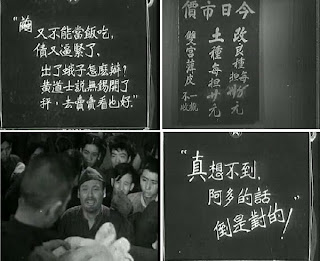 “繭
又不能當飯吃,
債又逼緊了,
出了蛾子怎麽辦?
黃道士說無錫開了
秤,去賣賣看也好.”
今日市價
改良種每担元
土種每担元
雙宮薄皮一概不收
“真想不到,
阿多的話
倒是對的!”